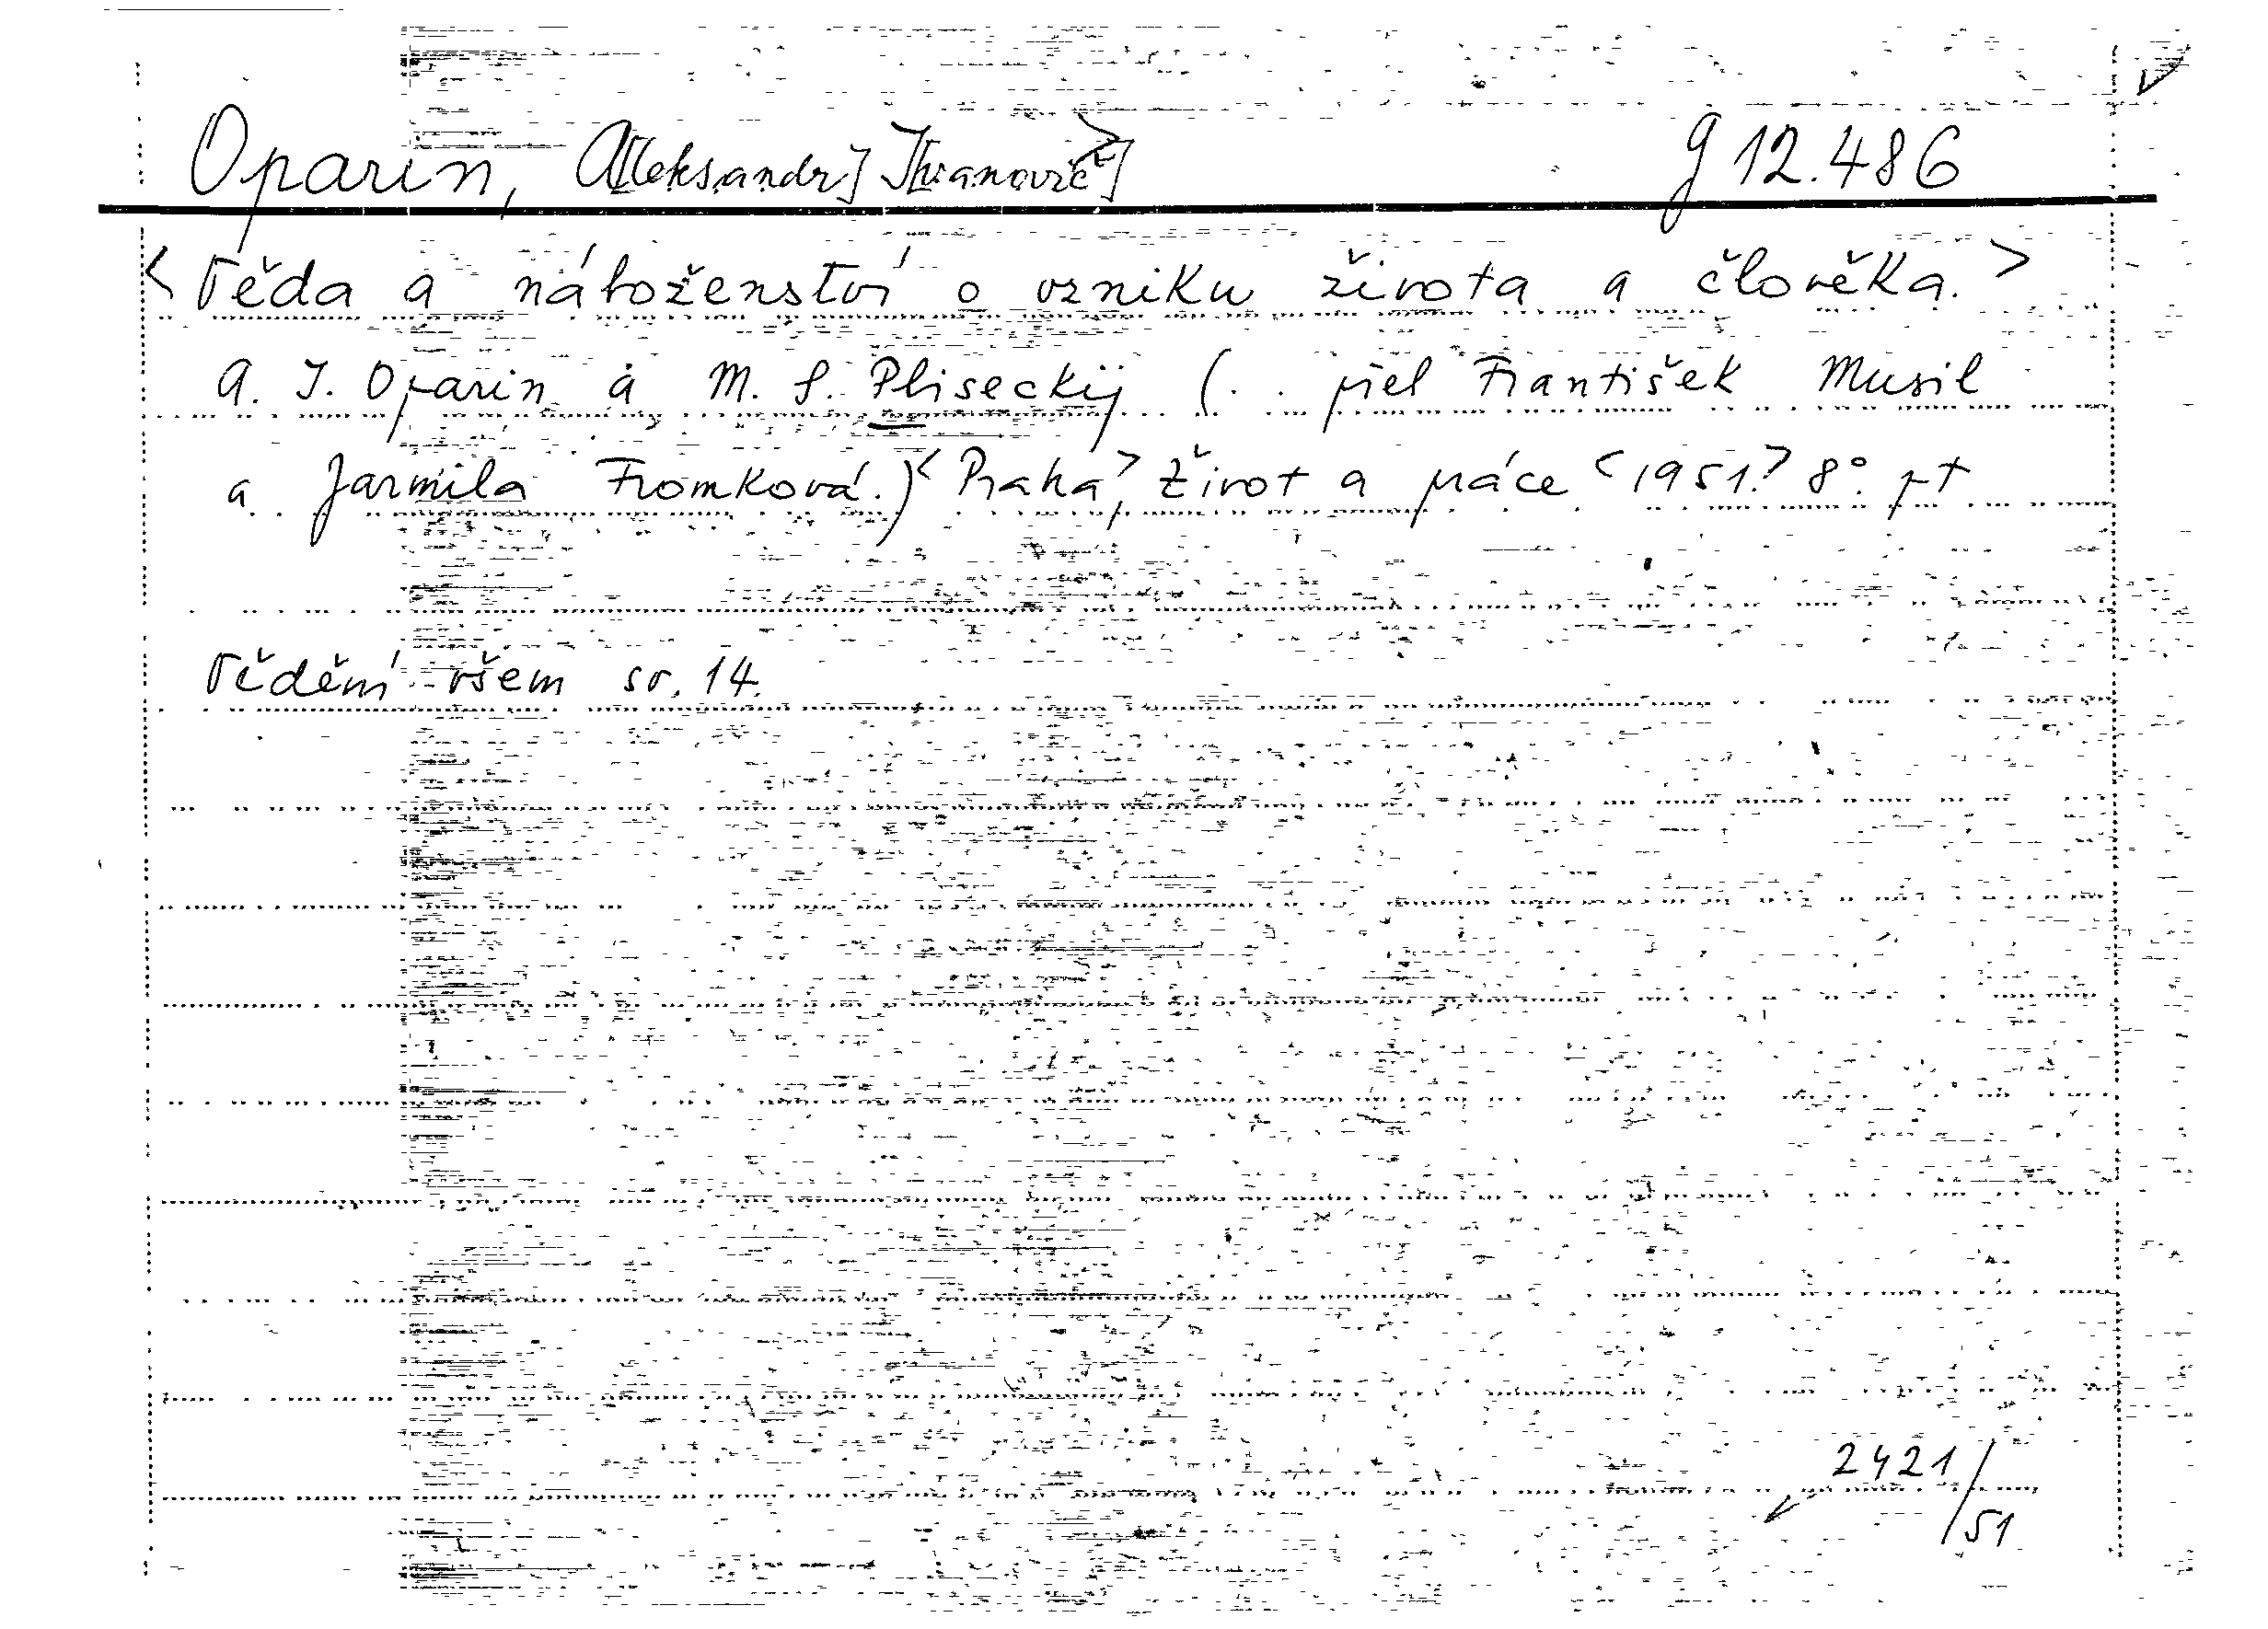 Oparin, A[leksandr] I[vanovič] g 12.486
<Věda a náboženství o vzniku života a člověka.>
A. I. Oparin a M. S. Pliseckij (.. přel František Musil
a Jarmila Fromková.) <Praha>, Život a práce <1951.> 8°. pt
Vědění všem sv. 14.
2421/51